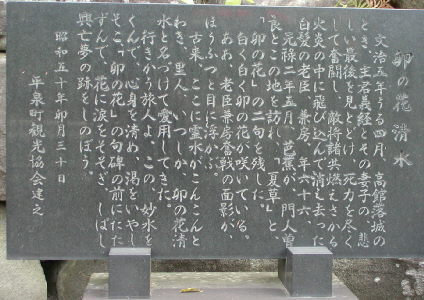 卯の花清水
文治五年うるう四月、高館落城の
とき、主君義経とその妻子の、悲
しい最後を見とどけ、死力を尽く
して奮闘し、敵将諸共燃えさかる
火炎の中に飛び込んで消え去った
白髪の老臣、兼房、年六十六。
元禄二年五月、芭蕉が、門人曽
良とこの地を訪れ、「夏草」と、
「卯の花」の二句を残した。
白く白く卯の花が咲いている。
ああ、老臣兼房奮戦の面影が、
ほうふつと目に浮かぶ。
古来、ここに霊水がこんこんと
わき、里人、いつしか、卯の花清
水と名づけて愛用してきた。
行きかう旅人よ、この、妙水を
くんで、心身を清め、渇をいやし、
そこ「卯の花」の句碑の前にたた
ずんで、花に涙をそそぎ、しばし
興亡夢の跡をしのぼう。
昭和五十年卯月三十日
平泉町観光協会建之